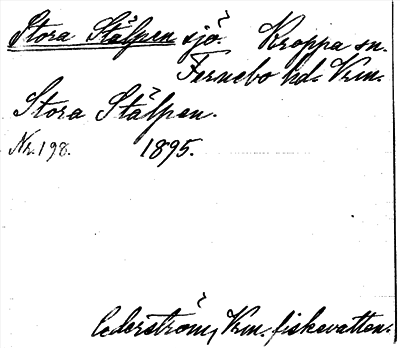 Stora Stälpen sjö. Kroppa sn.
Fernebo hd. Vrm.
Stora Stälpen.
Nr. 198. 1895.
Cederström, Vrm. fiskevatten.